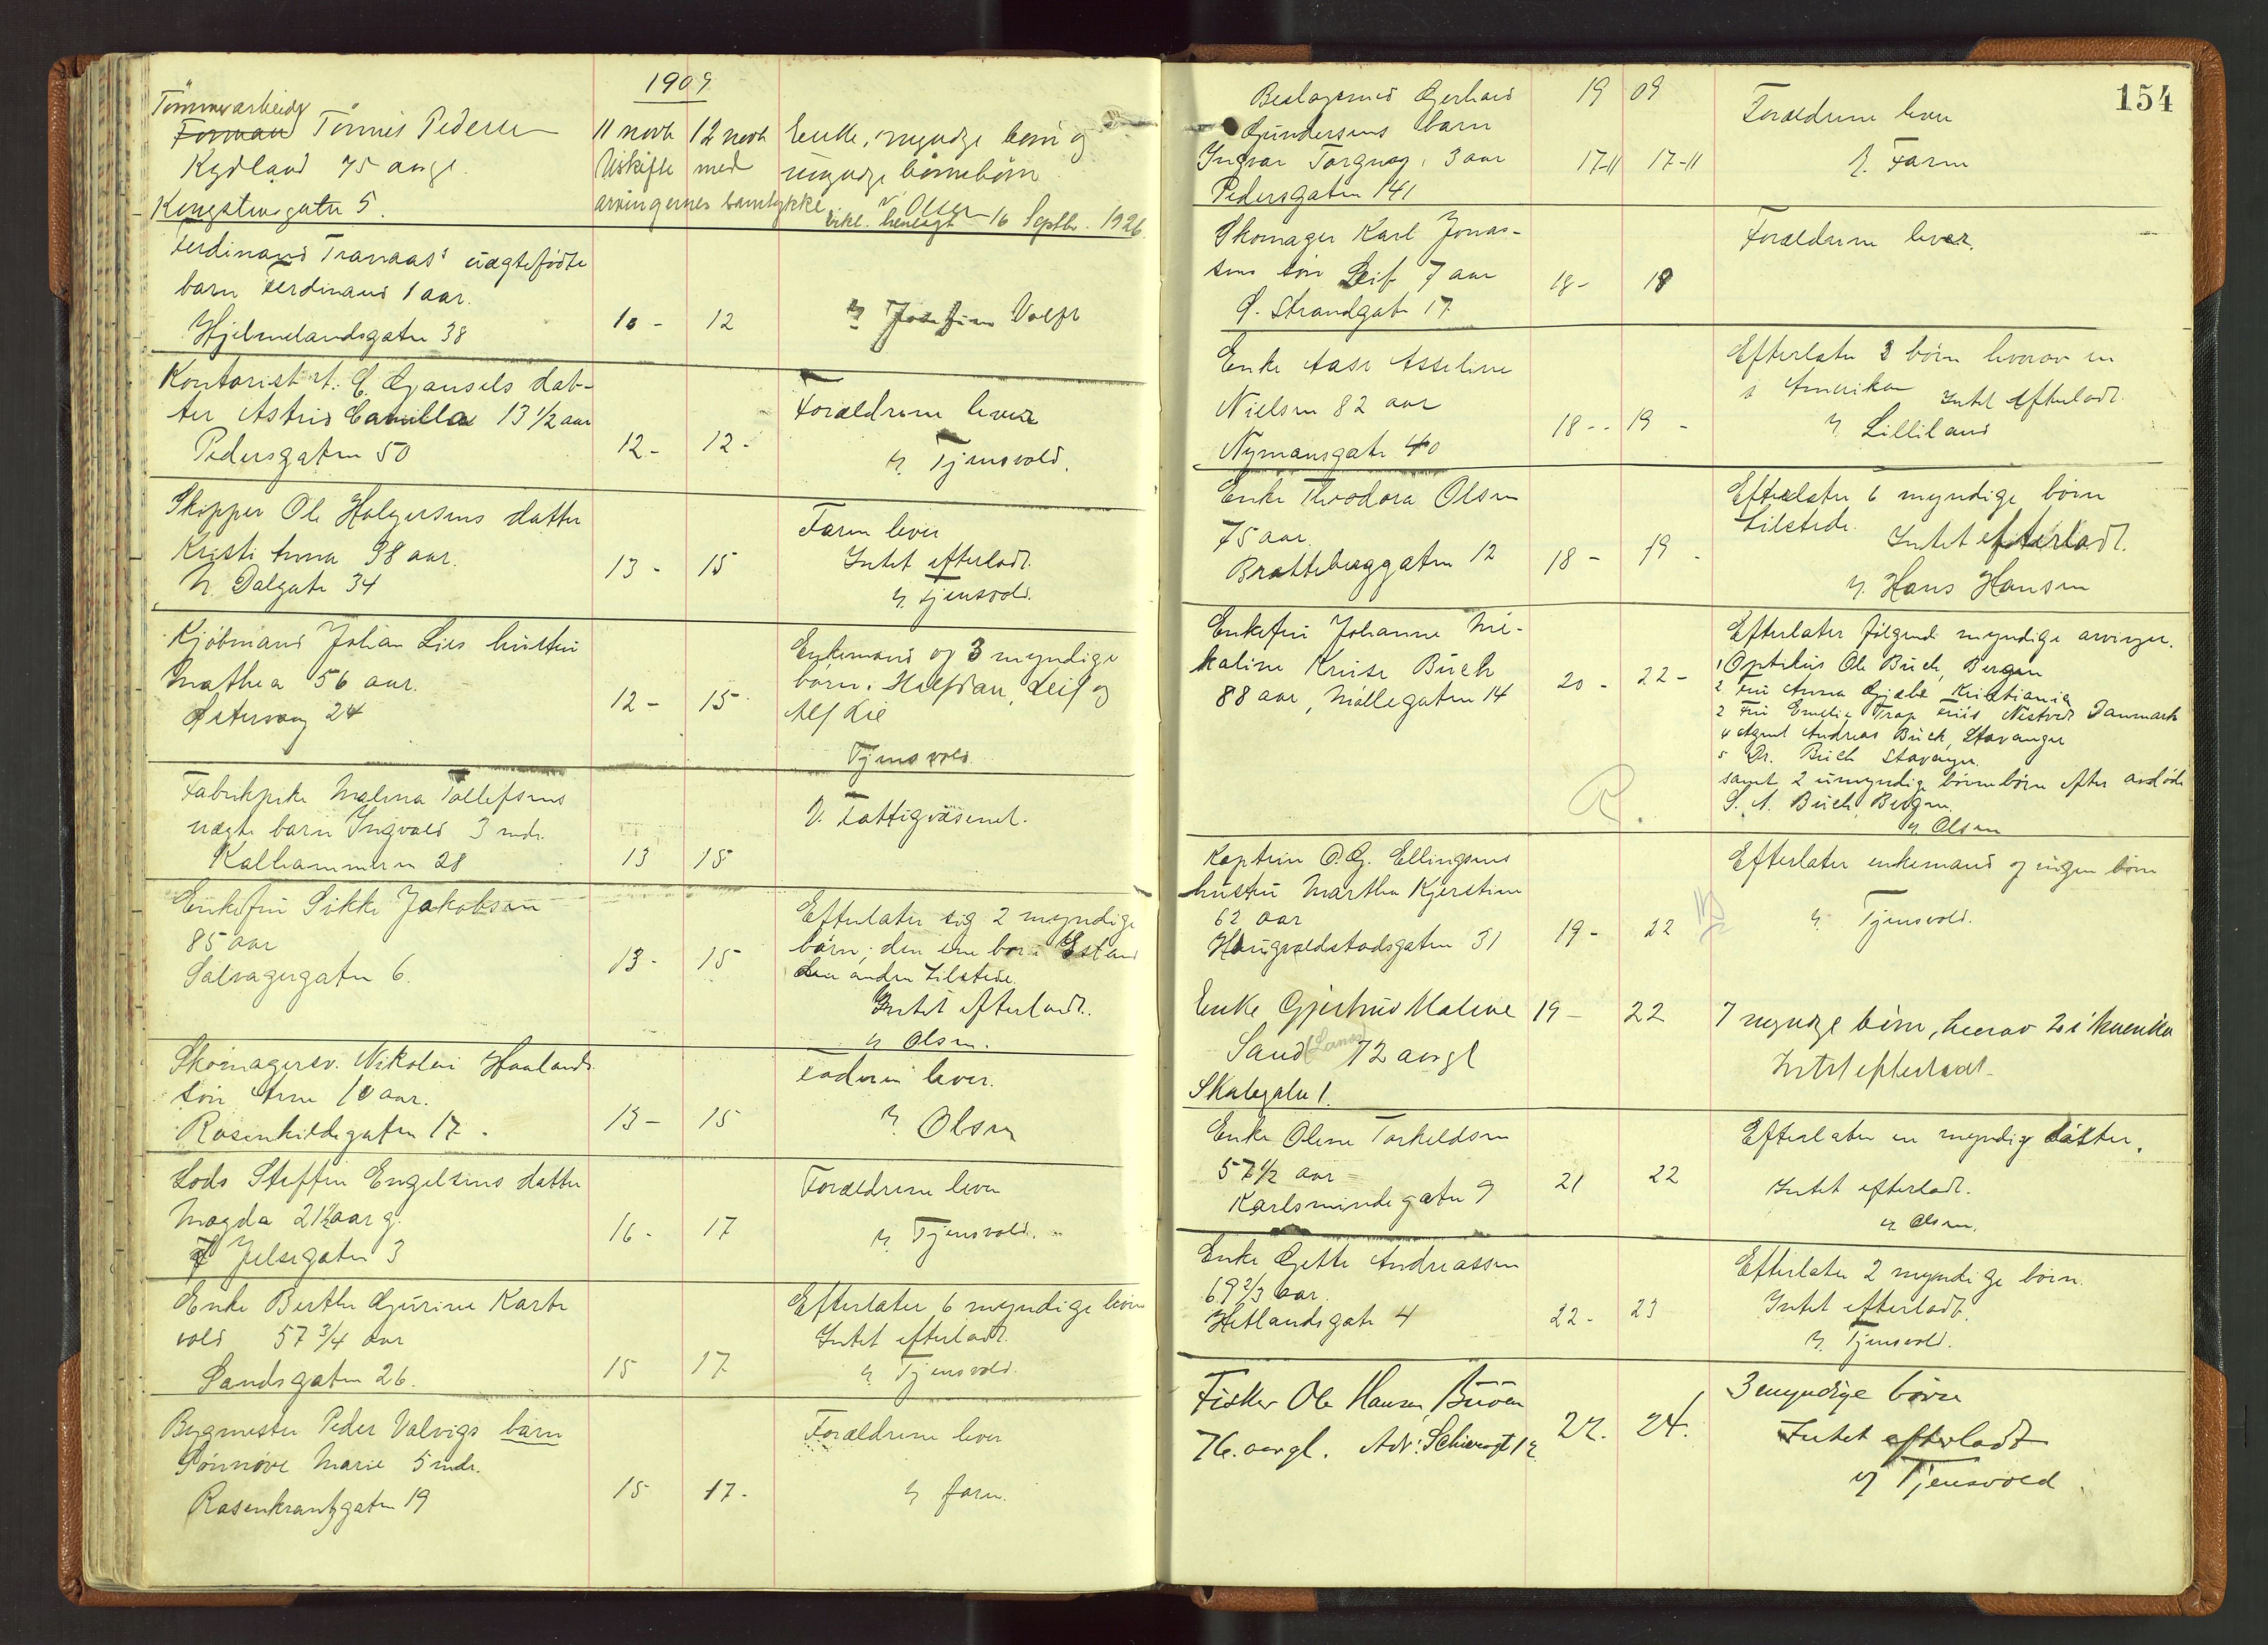 1909
Tømmerarbeider
Forman Tønnes Pedersen
Kydland 75 aargl.
Kongsteinsgaten 5.
11 novb 12 novb
Uskifte med
arvingernes samtykke
Enke, myndige børn og
umyndge børnebørn
v Olsen
16 Septbr. 1926.
Ferdinand Tranaas' uægtefødte
barn Ferdinand 1 aar.
Hjelmelandsgaten 38
10 - 12
Kontorist A. C. Gjausels dat-
ter Astrid Camilla 13 1/2 aar
Pedersgaten 50
12 - 12 -
Forældrene lever
v. Tjensvold.
Skipper Ole Holgersens datter
Kristi Anna 38 aar.
N. Dalgate 34
13 - 15
Faren lever
Intet efterladt.
v. Tjensvold.
Kjøbmand Johan Lies hustru
Mathea 56 aar.
Østervaag 24
12 - 15
Enkemand og 3 myndige
børn. Halfdan, Leif og
Alf Lie
Tjensvold
Fabrikpike Malena Tollefsens
uægte barn Ingvald 3 mdr.
Kalhammeren 28
13 15
V. Fattigvæsenet.
Enkefru Sikke Jakobsen
85 aar
Salvagergaten 6.
13 - 15
Efterlater sig 2 myndige
børn; den ene bor i
den anden tilstede.
Intet efterladt.
v Olsen.
Skomagersv. Nikolai Haalands
søn Arne 10 aar.
Rosenkildegaten 17.
13 - 15
Faderen lever.
v. Olsen
Lods Steffen Engelsens datter
Magda 21 1/2 aar g.
Jelsegaten 3
16 - 17
Forældrene lever
v. Tjensvold.
Enke Berthe Gurine Karte
vold 57 3/4 aar
Sandsgaten 26.
15 17
Efterlater 6 myndige børn
Intet efterladt.
v. Tjensvold.
Bygmester Peder Valvigs barn
Sønnøve Marie 5 mdr.
Rosenkrantzgaten 19
15 17 -
Forældrene lever
v faren.
154
Beslagsmed Gerhard
Gundersens barn
Ingvar Torgny, 3 aar
Pedersgaten 141
19 09
17-11 17-11
Forældrene lever
v. Faren
Skomager Karl Jonas-
sens søn Leif 7 aar
Ø. Strandgate 17
18 - 18
Forældrene lever.
Enke Aase Asseline
Nielsen 82 aar
Nymansgate 40
18 - - 19 -
Efterlater 3 børn hvorav en
i Amerika Intet efterladt.
v. Lilleland
Enke Theodora Olsen
75 aar.
Bratteberggaten 12
18 - 19 -
Efterlater 6 myndige børn
tilstede. Intet efterladt.
v. Hans Hansen
Enkefru Johanne Mi-
kaline Kruse Buch
88 aar, Møllegaten 14
20 - 22 -
Efterlater følgende myndige arvinger.
1 Optikus Ole Buch, Bergen
2 Fru Anna Kristiania
2 Fru Emelie Trap Friis Nestved Danmark
4 Agent Andreas Buch, Stavanger
5 Dr. Buch Stavanger.
samt 2 umyndige børnebørn efter avdøde
S. A. Buch, Bergen.
v. Olsen
R.
Kaptein O. G. Ellingsens
hustru Martha Kjerstine
62 aar
Haugvaldstadsgaten 31
19 - 22
Efterlater enkemand og ingen børn
v. Tjensvold.
Enke Gjertrud Maline
Sand (Lande) 72 aargl
Skolegaten 1.
19 - 22
7 myndge børn, hvorav 2 i Amerika
Intet efterladt -
Enke Olene Torkeldsen
57 1/2 aar
Karlsmindegaten 9
21 22
Efterlater en myndig datter.
Intet efterladt.
v Olsen.
Enke Gjette Andreassen
69 2/3 aar.
Hetlandsgate 4
22 - 23
Efterlater 2 myndige børn.
Intet efterladt.
v. Tjensvold.
Fisker Ole Hansen Buøen
76. aargl. Adr:
22. 24.
3 myndige børn
Intet efterladt
v Tjensvold